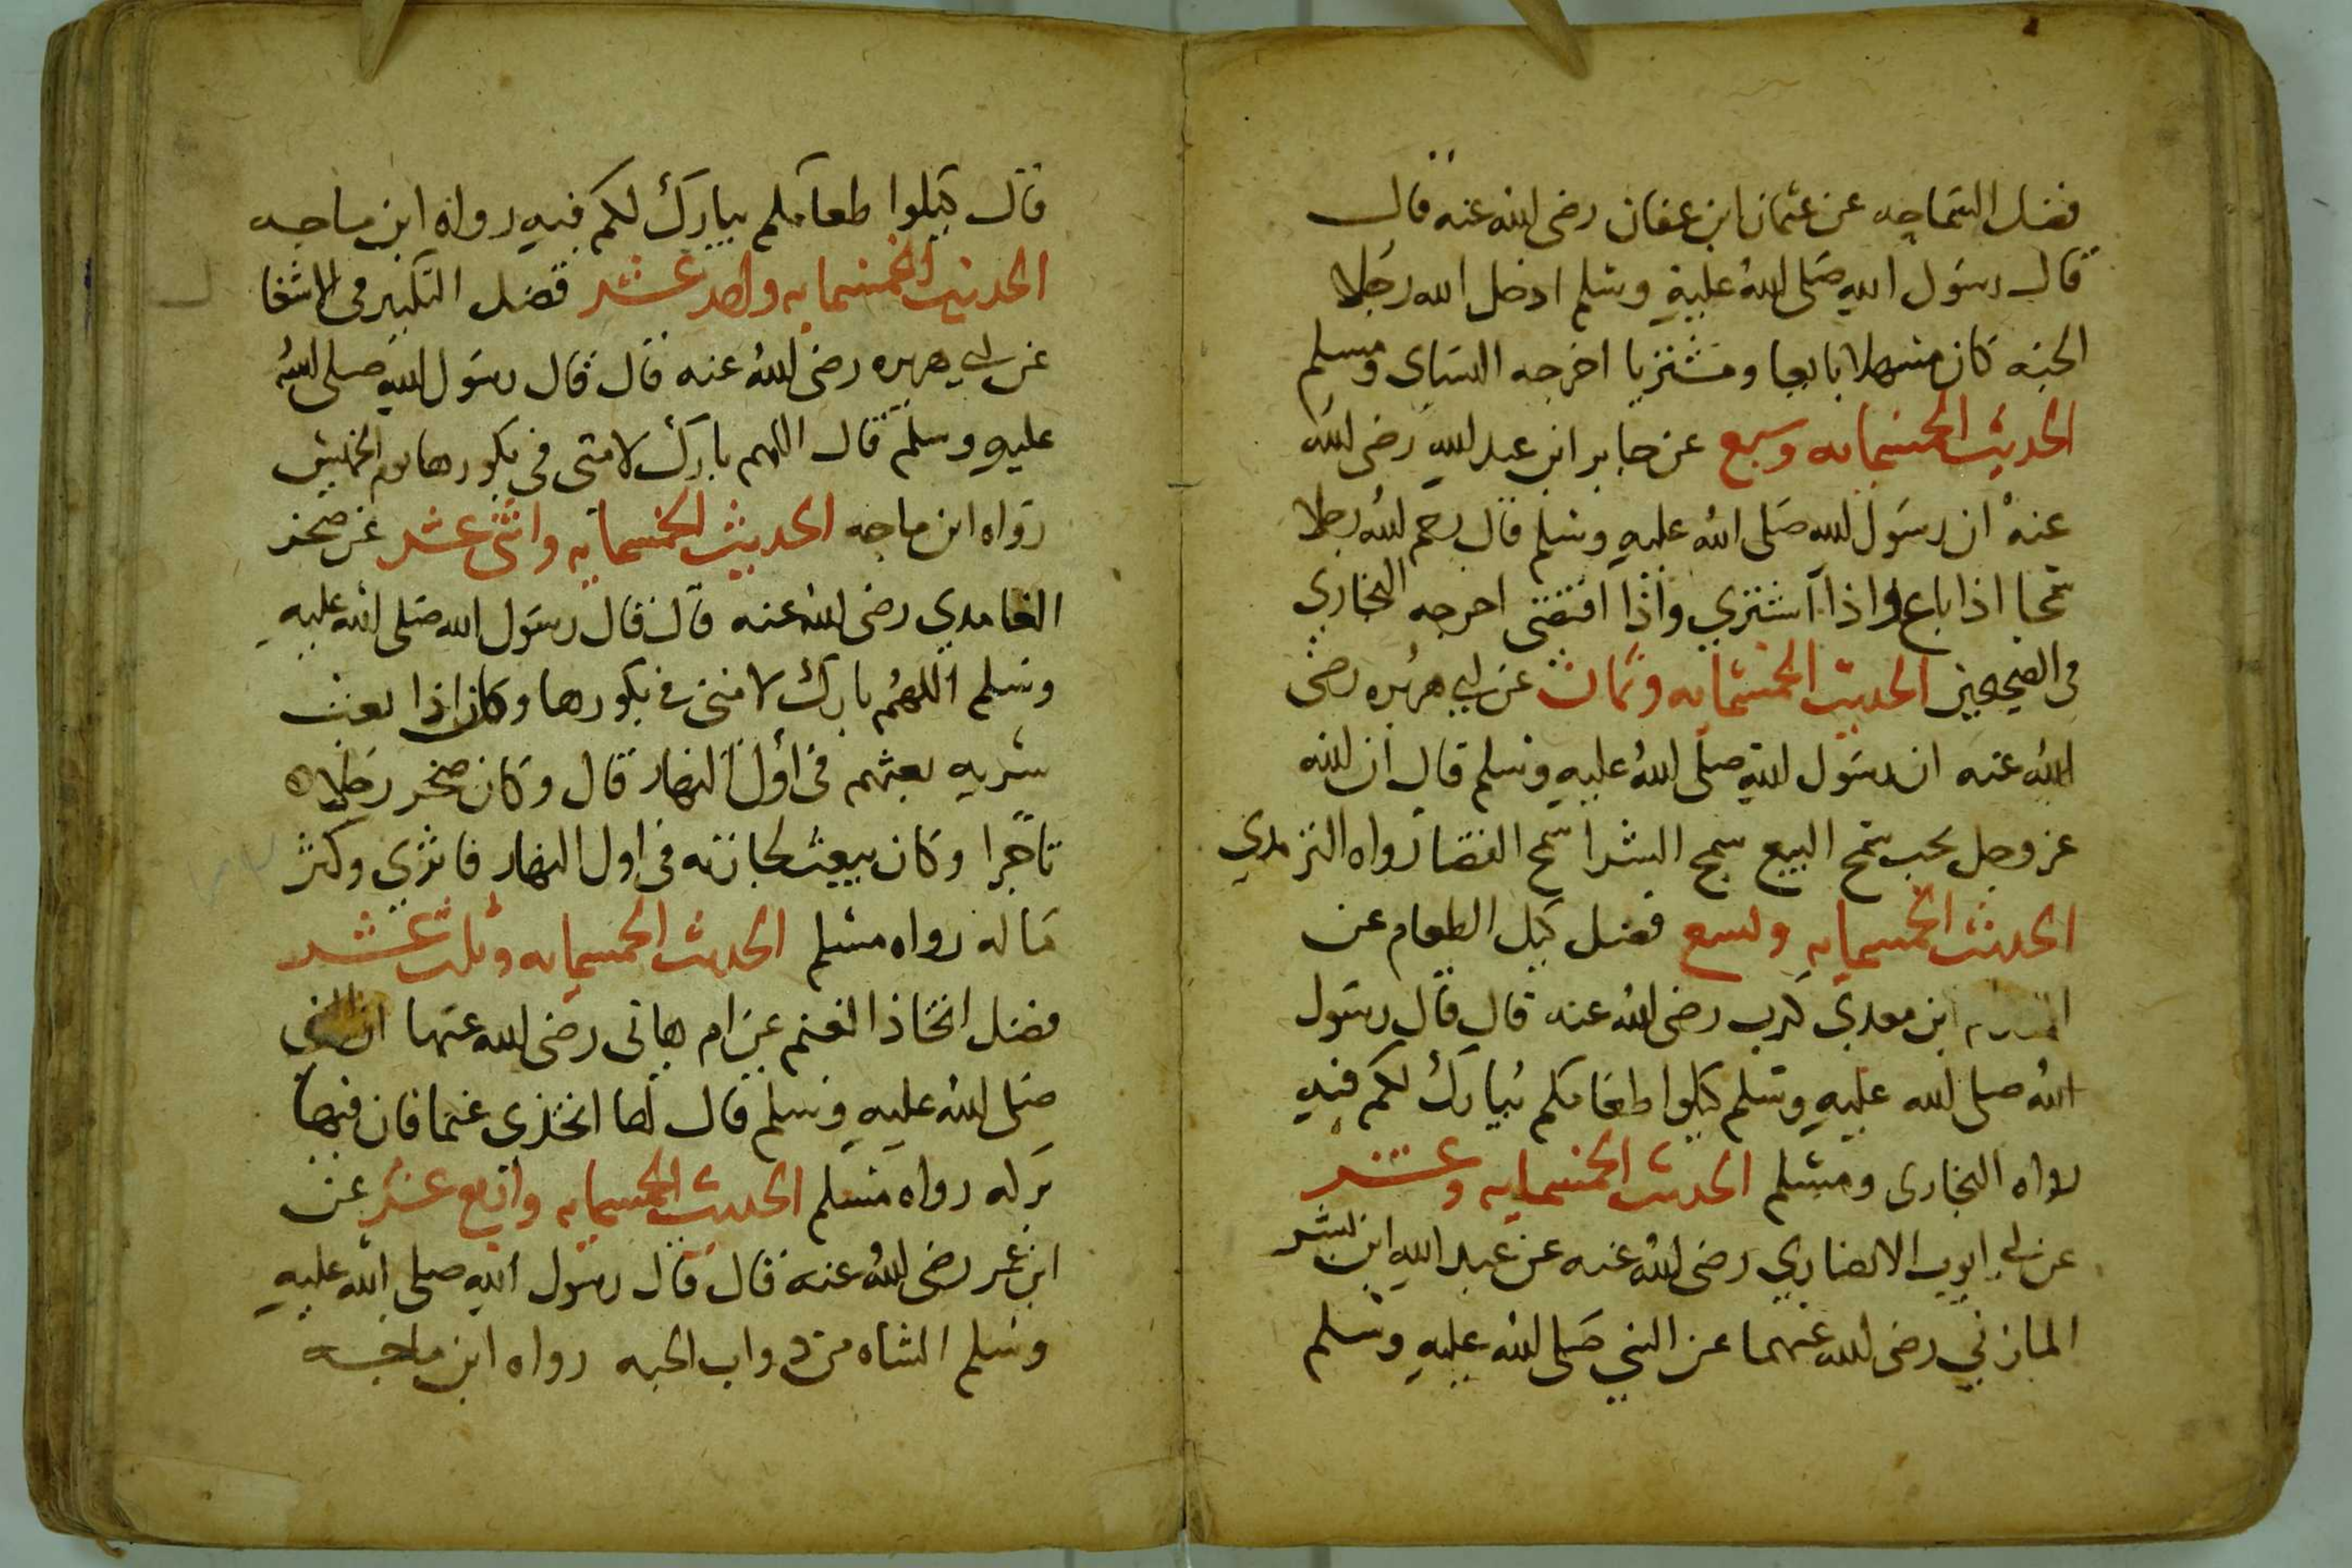 فضل السماحه عن عثمان ابن عفان رضي الله عنه قال
قال رسول الله صلى الله عليه وسلم ادخل الله رجلا
الجنه كان سهلا بايعا ومشتريا اخرجه النساى ومسلم
الحديث الخمسمايه وسبع عن جابر ابن عبد الله رضي الله
عنه ان رسول الله صلى الله عليه وسلم قال رحم الله رجلا
سمحا اذا باع واذا اشتري واذا اقتضى اخرجه البخاري
في الصحيحين الحديث الخمسمايه وثمان عن ابي هريره رضي
الله عنه ان رسول الله صلى الله عليه وسلم قال ان الله
عز وجل يحب سمح البيع سمح الشرا سمح القضا رواه الترمدي
الحديث الخمسمايه وتسع فضل كيل الطعام عن
المقدام ابن معدي كرب رضي الله عنه قال قال رسول
الله صلى الله عليه وسلم كيلوا طعامكم يبارك لكم فيه
رواه البخارى ومسلم الحديث الخمسمايه وعشر
عن ابي ايوب الانصاري رضي الله عنه عن عبد الله ابن بشر
المازني رضي الله عنهما عن النبي صلى الله عليه وسلم
قال كيلوا طعامكم يبارك لكم فيه رواه ابن ماجه
الحديث الخمسمايه واحد عشر فضل التكبير في الاشغا
عن ابي هريره رضي الله عنه قال قال رسول الله صلى الله
عليه وسلم قال اللهم بارك لامتى في بكورها يوم الخميس
رواه ابن ماجه الحديث الخمسمايه واثنى عشر عن صخر
الغامدي رضي الله عنه قال قال رسول الله صلى الله عليه
وسلم اللهم بارك لامتى في بكورها وكان اذا بعث
سريه بعثهم في أول النهار قال وكان صخر رجلا
تاجرا وكان يبعث تجارته في اول النهار فاثري وكثر
ماله رواه مسلم الحديث الخمسمايه وثلث عشر
فضل اتخاذ الغنم عن ام هانى رضي الله عنها ان النبي
صلى الله عليه وسلم قال لها اتخذى غنما فان فيها
بركه رواه مسلم الحديث الخمسمايه واربع عشر عن
ابن عمر رضي الله عنه قال قال رسول الله صلى الله عليه
وسلم الشاه من دواب الجنه رواه ابن ماجه